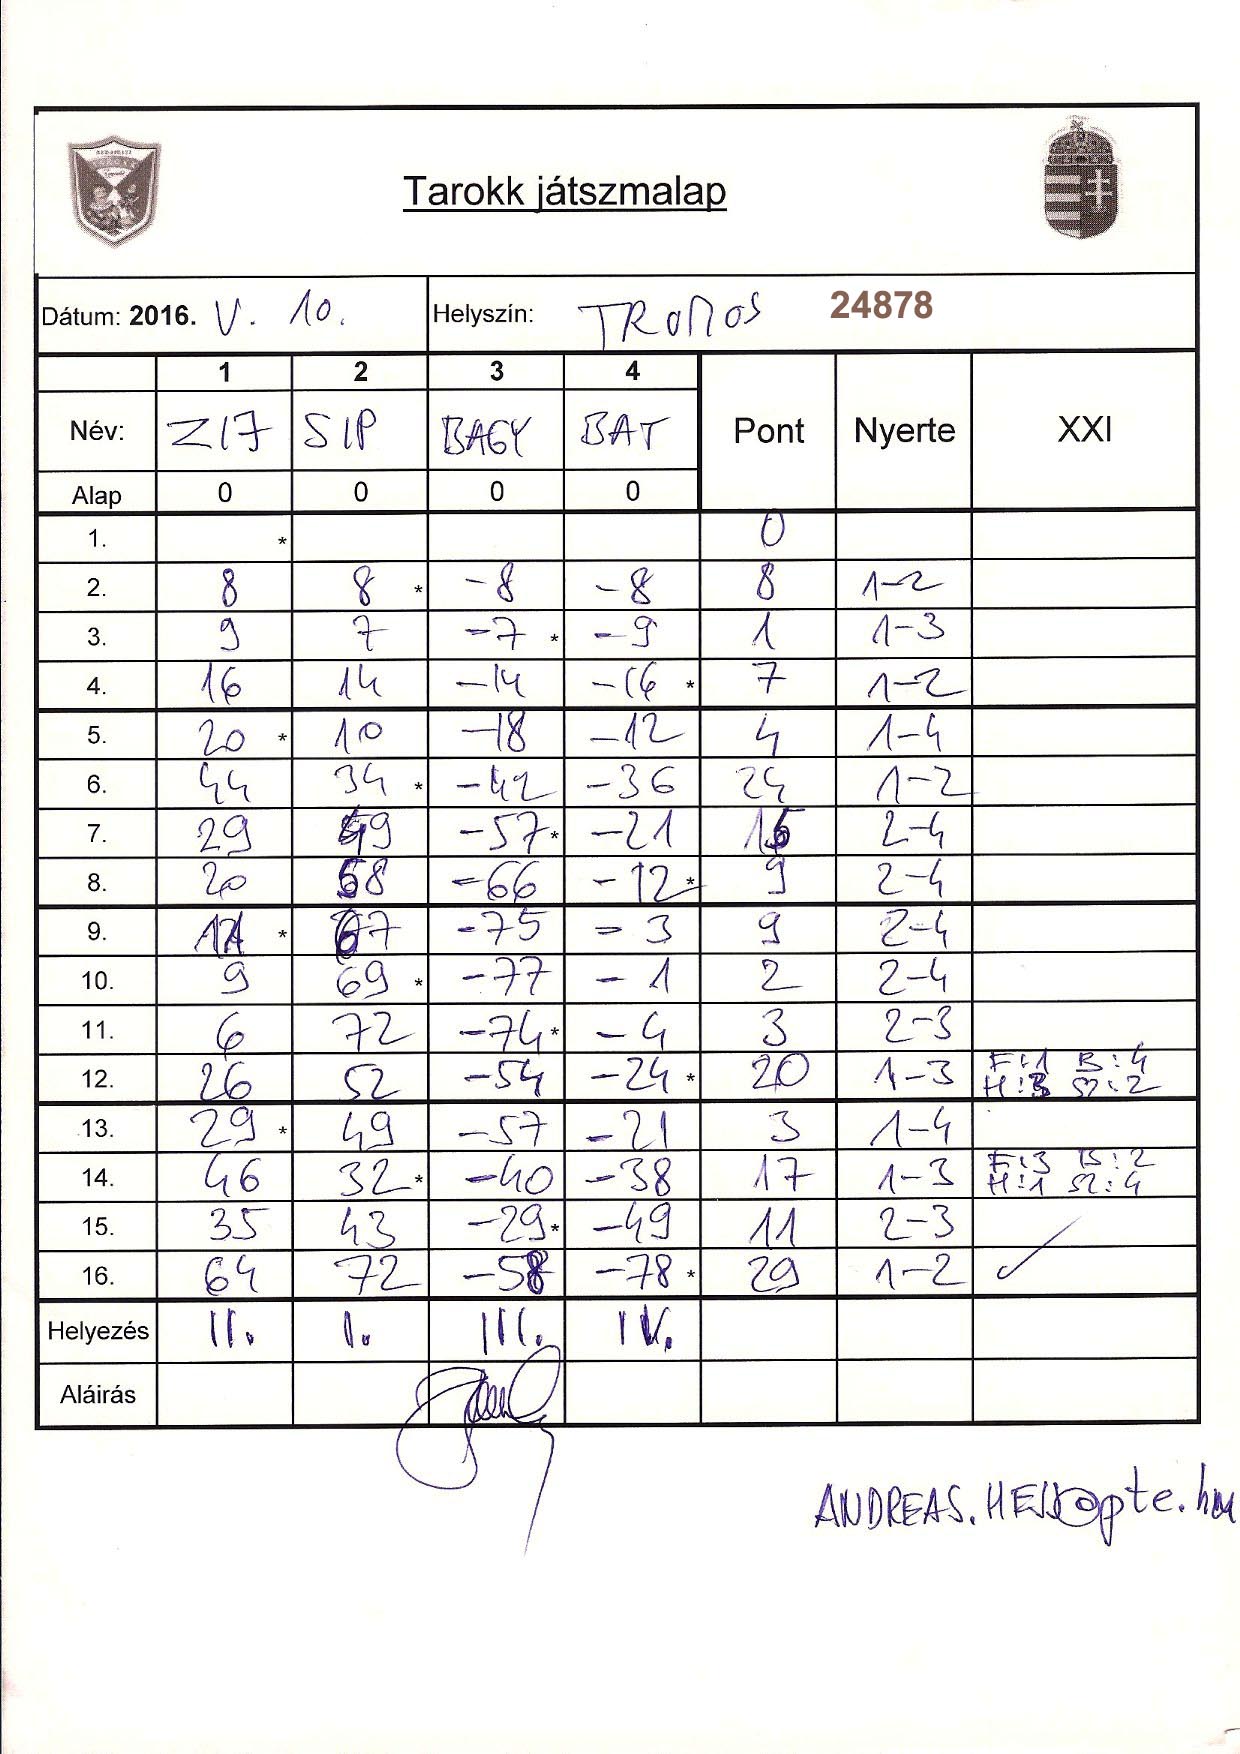 Tarokk játszmalap
Dátum: 2016. V. 10. Helyszín: TROMOS 24878
1 2 3 4
Név: ZI7 SIP BAGY BAT Pont Nyerte XXI
Alap 0 0 0 0
1. * 0
2. 8 8 * -8 -8 8 1-2
3. 9 7 -7 * -9 1 1-3
4. 16 14 -14 -16 * 7 1-2
5. 20 * 10 -18 -12 4 1-4
6. 44 34 * -42 -36 24 1-2
7. 29 49 -57 * -21 15 2-4
8. 20 58 -66 -12 * 9 2-4
9. 11 * 67 -75 -3 9 2-4
10. 9 69 * -77 -1 2 2-4
11. 6 72 -74 * -4 3 2-3
12. 26 52 -54 -24 * 20 1-3 F:1 B:4
H:3 SZ:2
13. 29 * 49 -57 -21 3 1-4
14. 46 32 * -40 -38 17 1-3 F:3 B:2
H:1 SZ:4
15. 35 43 -29 * -49 11 2-3
16. 64 72 -58 -78 * 29 1-2 ✓
Helyezés II. I. III. IV.
Aláírás
ANDREAS.HESS@pte.hu